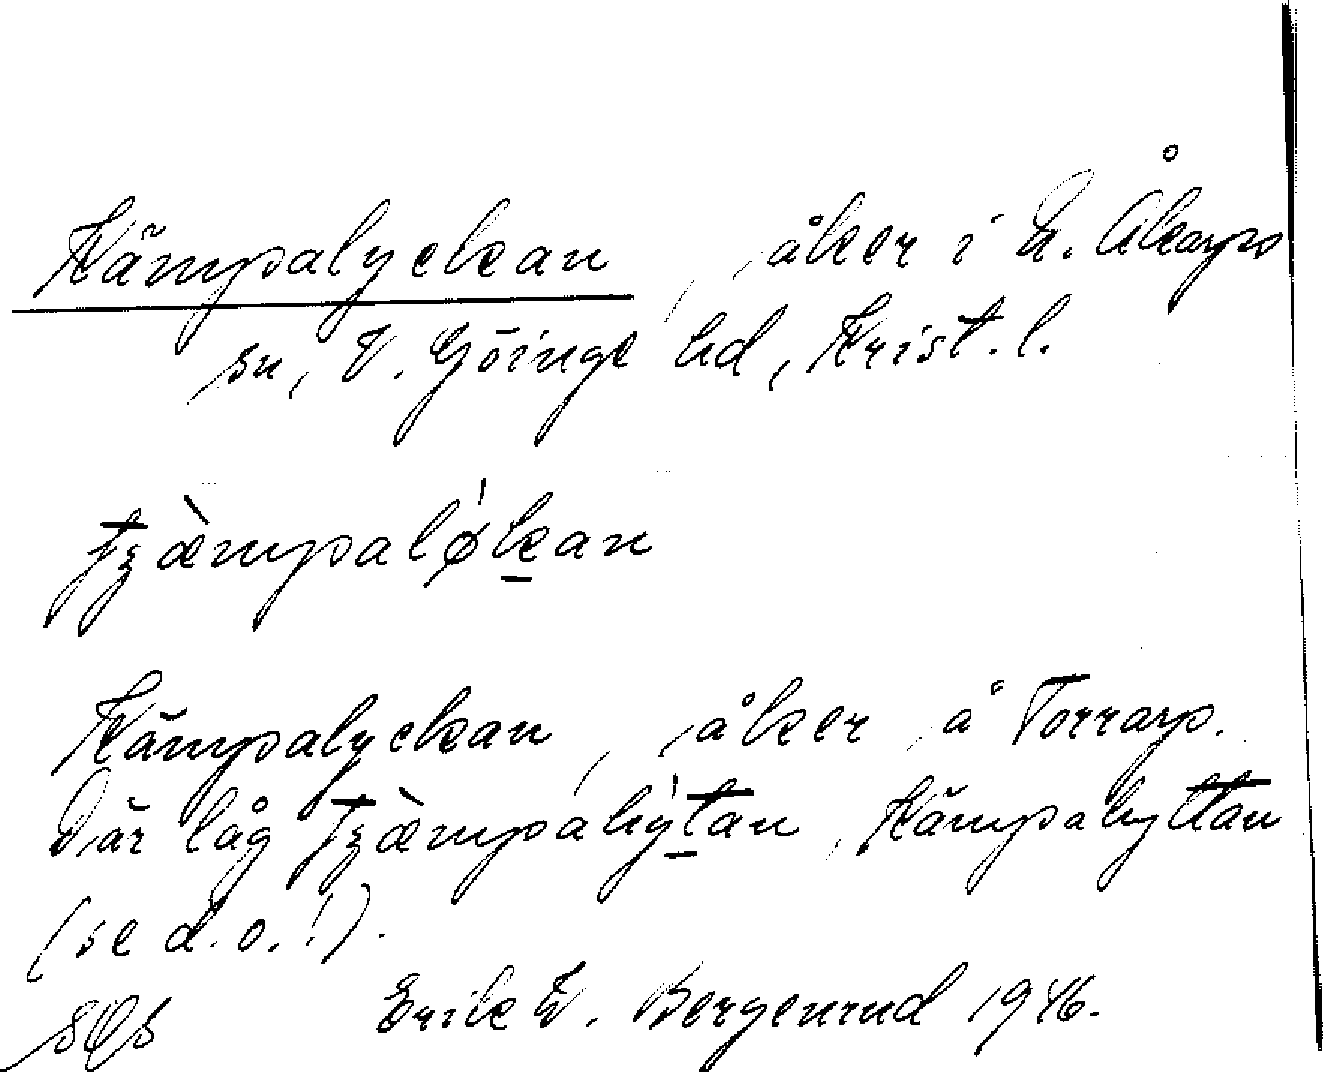 Kämpalyckan, åker i N. Åkarps
sn, V. Göinge hd, Krist. l.
tʒæ̀mpalø̍k̠an
Kämpalyckan, åker å Torrarp.
Där låg tʒæ̀mpahy̍t̠an, Kämpahyttan
(se d. o.!).
Erik E. Bergenrud 1946.